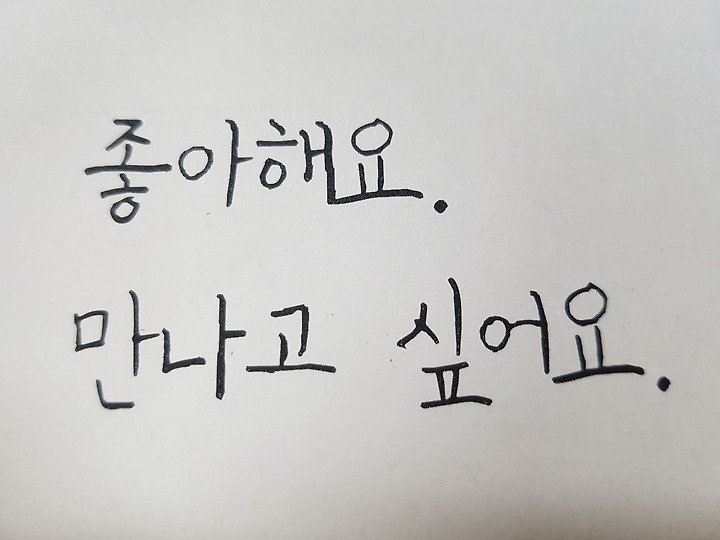 좋아해요.
만나고 싶어요.